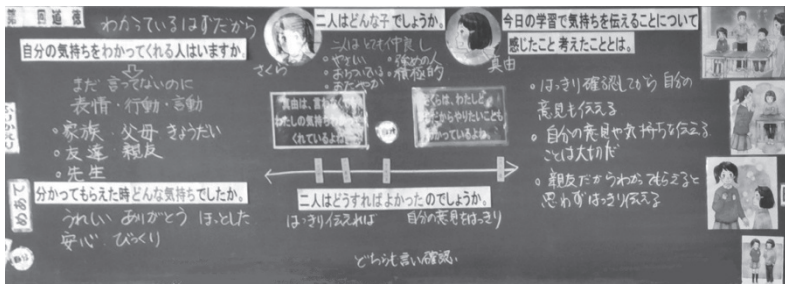 第 回道徳
わかっているはずだから
自分の気持ちをわかってくれる人はいますか。
まだ言ってないのに
表情・行動・言動
・家族・父母 きょうだい
・友達 親友
・先生
めあて
分かってもらえた時どんな気持ちでしたか。
うれしい ありがとう ほっとした
安心 びっくり
二人はどんな子でしょうか。
二人はとても仲良し
さくら
・やさしい
・おだやか
・強めの人
・積極的
真由
真由は、言わなくても
わたしの気持ち
くれているよね
さくらは、わたしと
だからやりたいことも
かっているよね
二人はどうすればよかったのでしょうか。
はっきり伝えれば 自分の意見をはっきり
どちらも言い確認
今日の学習で気持ちを伝えることについて
感じたこと 考えたこととは。
・はっきり確認してから自分の
意見も伝える
・自分の意見や気持ちを伝える
ことは大切だ
・親友だからわかってもらえると
思わずはっきり伝える